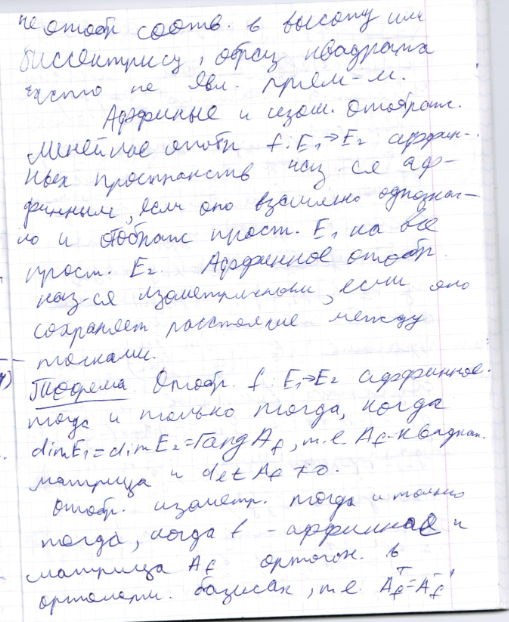 не отобр соотв. в высоту или
биссектрису, образ квадрата
часто не явл. прям-м.
Аффинные и изом. отображ.
Линейное отобр f: E₁→E₂ аффин-
ных пространств наз-ся аф-
финным, если оно взаимно однознач-
но и отображ прост. E₁ на все
прост. E₂. Аффинное отобр.
наз-ся изометричным, если оно
сохраняет расстояние между
точками.
Теорема Отобр. f E₁→E₂ аффинное.
тогда и только тогда, когда
dimE₁=dimE₂=rang A_f, т.е A_f-квадрат.
матрица и det A_f ≠ 0.
Отобр. изометр. тогда и только
тогда, когда f - аффинное и
матрица A_f ортогон. в
ортонорм. базисах, т.е. A_f^T=A_f^-1